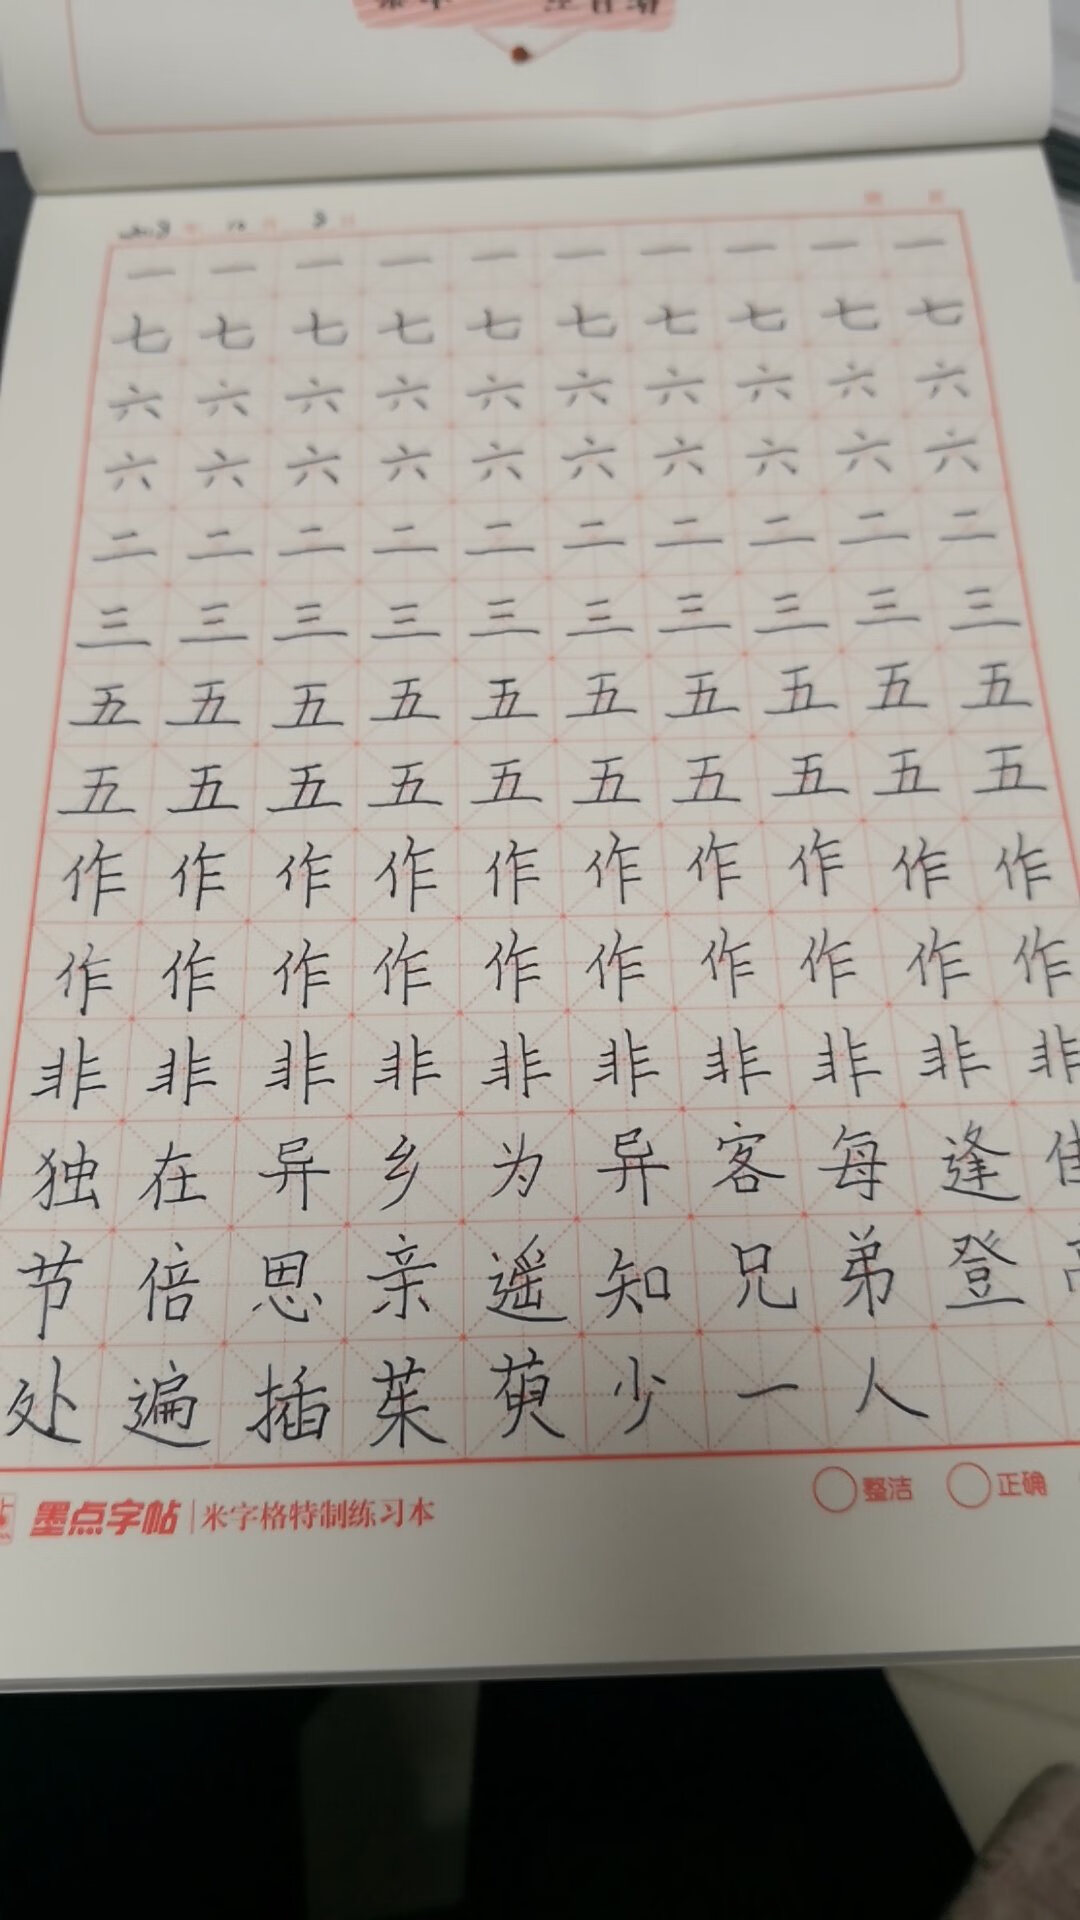 一一一一一一一一一一
七七七七七七七七七七
六六六六六六六六六六
六六六六六六六六六六
二二二二二二二二二二
三三三三三三三三三三
五五五五五五五五五五
五五五五五五五五五五
作作作作作作作作作作
作作作作作作作作作作
非非非非非非非非非非
独在异乡为异客每逢佳
节倍思亲遥知兄弟登
处遍插茱萸少一人
墨点字帖 米字格特制练习本 整洁 正确